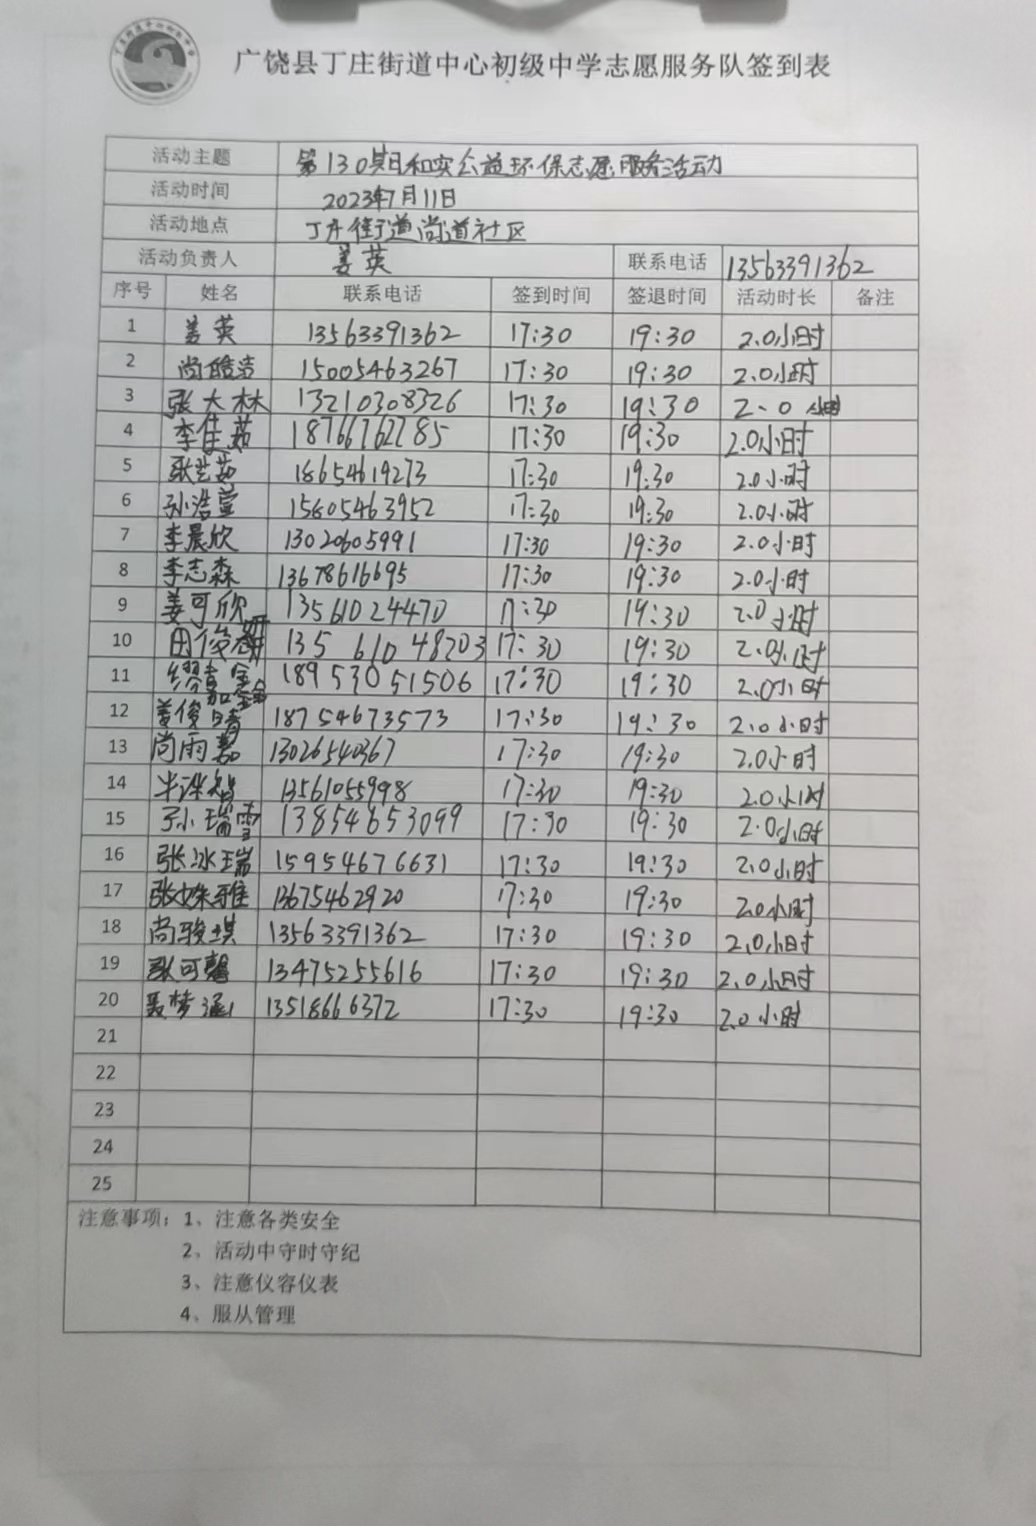 广饶县丁庄街道中心初级中学志愿服务队签到表
活动主题 第130期日和实公益环保志愿服务活动
活动时间 2023年7月11日
活动地点 丁庄街道尚道社区
活动负责人 姜英 联系电话 13563391362
序号 姓名 联系电话 签到时间 签退时间 活动时长 备注
1 姜英 13563391362 17:30 19:30 2.0小时
2 尚皓洁 15005463267 17:30 19:30 2.0小时
3 张大林 13210308326 17:30 19:30 2.0小时
4 李佳茹 18766762785 17:30 19:30 2.0小时
5 张艺茹 18654619273 17:30 19:30 2.0小时
6 孙浩萱 15605463952 17:30 19:30 2.0小时
7 李晨欣 13020605991 17:30 19:30 2.0小时
8 李志森 13678616695 17:30 19:30 2.0小时
9 姜可欣 13561024470 17:30 19:30 2.0小时
10 田俊妍 135 610 48203 17:30 19:30 2.0小时
11 缪嘉鑫 18953051506 17:30 19:30 2.0小时
12 姜俊晴 18754673573 17:30 19:30 2.0小时
13 尚雨嘉 13026540367 17:30 19:30 2.0小时
14 13561055998 17:30 19:30 2.0小时
15 孙瑞雪 13854653099 17:30 19:30 2.0小时
16 张冰瑞 15954676631 17:30 19:30 2.0小时
17 张姝雅 13675462920 17:30 19:30 2.0小时
18 尚骏琪 13563391362 17:30 19:30 2.0小时
19 张可馨 13475255616 17:30 19:30 2.0小时
20 聂梦涵 13518666372 17:30 19:30 2.0小时
21
22
23
24
25
注意事项：1、注意各类安全
2、活动中守时守纪
3、注意仪容仪表
4、服从管理